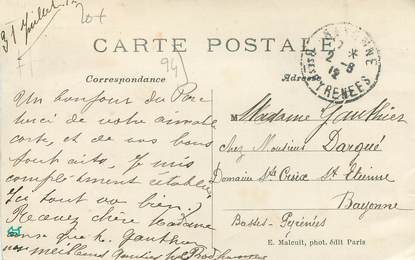 31 Juillet
20+
CARTE POSTALE
94
Correspondance
Adresse
BAYONNE
2-8
12
BSES PYRENEES
Un bonjour du Parc
merci de votre aimable
carte, et de vos bons
souhaits. Je suis
complètement établie
Ici tout va bien.
Recevez chère Madame
ainsi que M. Gauthier
nos meilleures
Madame Gauthier
chez Monsieur Dargué
Domaine Ste Croix St Etienne
Bayonne
Basses-Pyrénées
E. Malcuit, phot. édit Paris